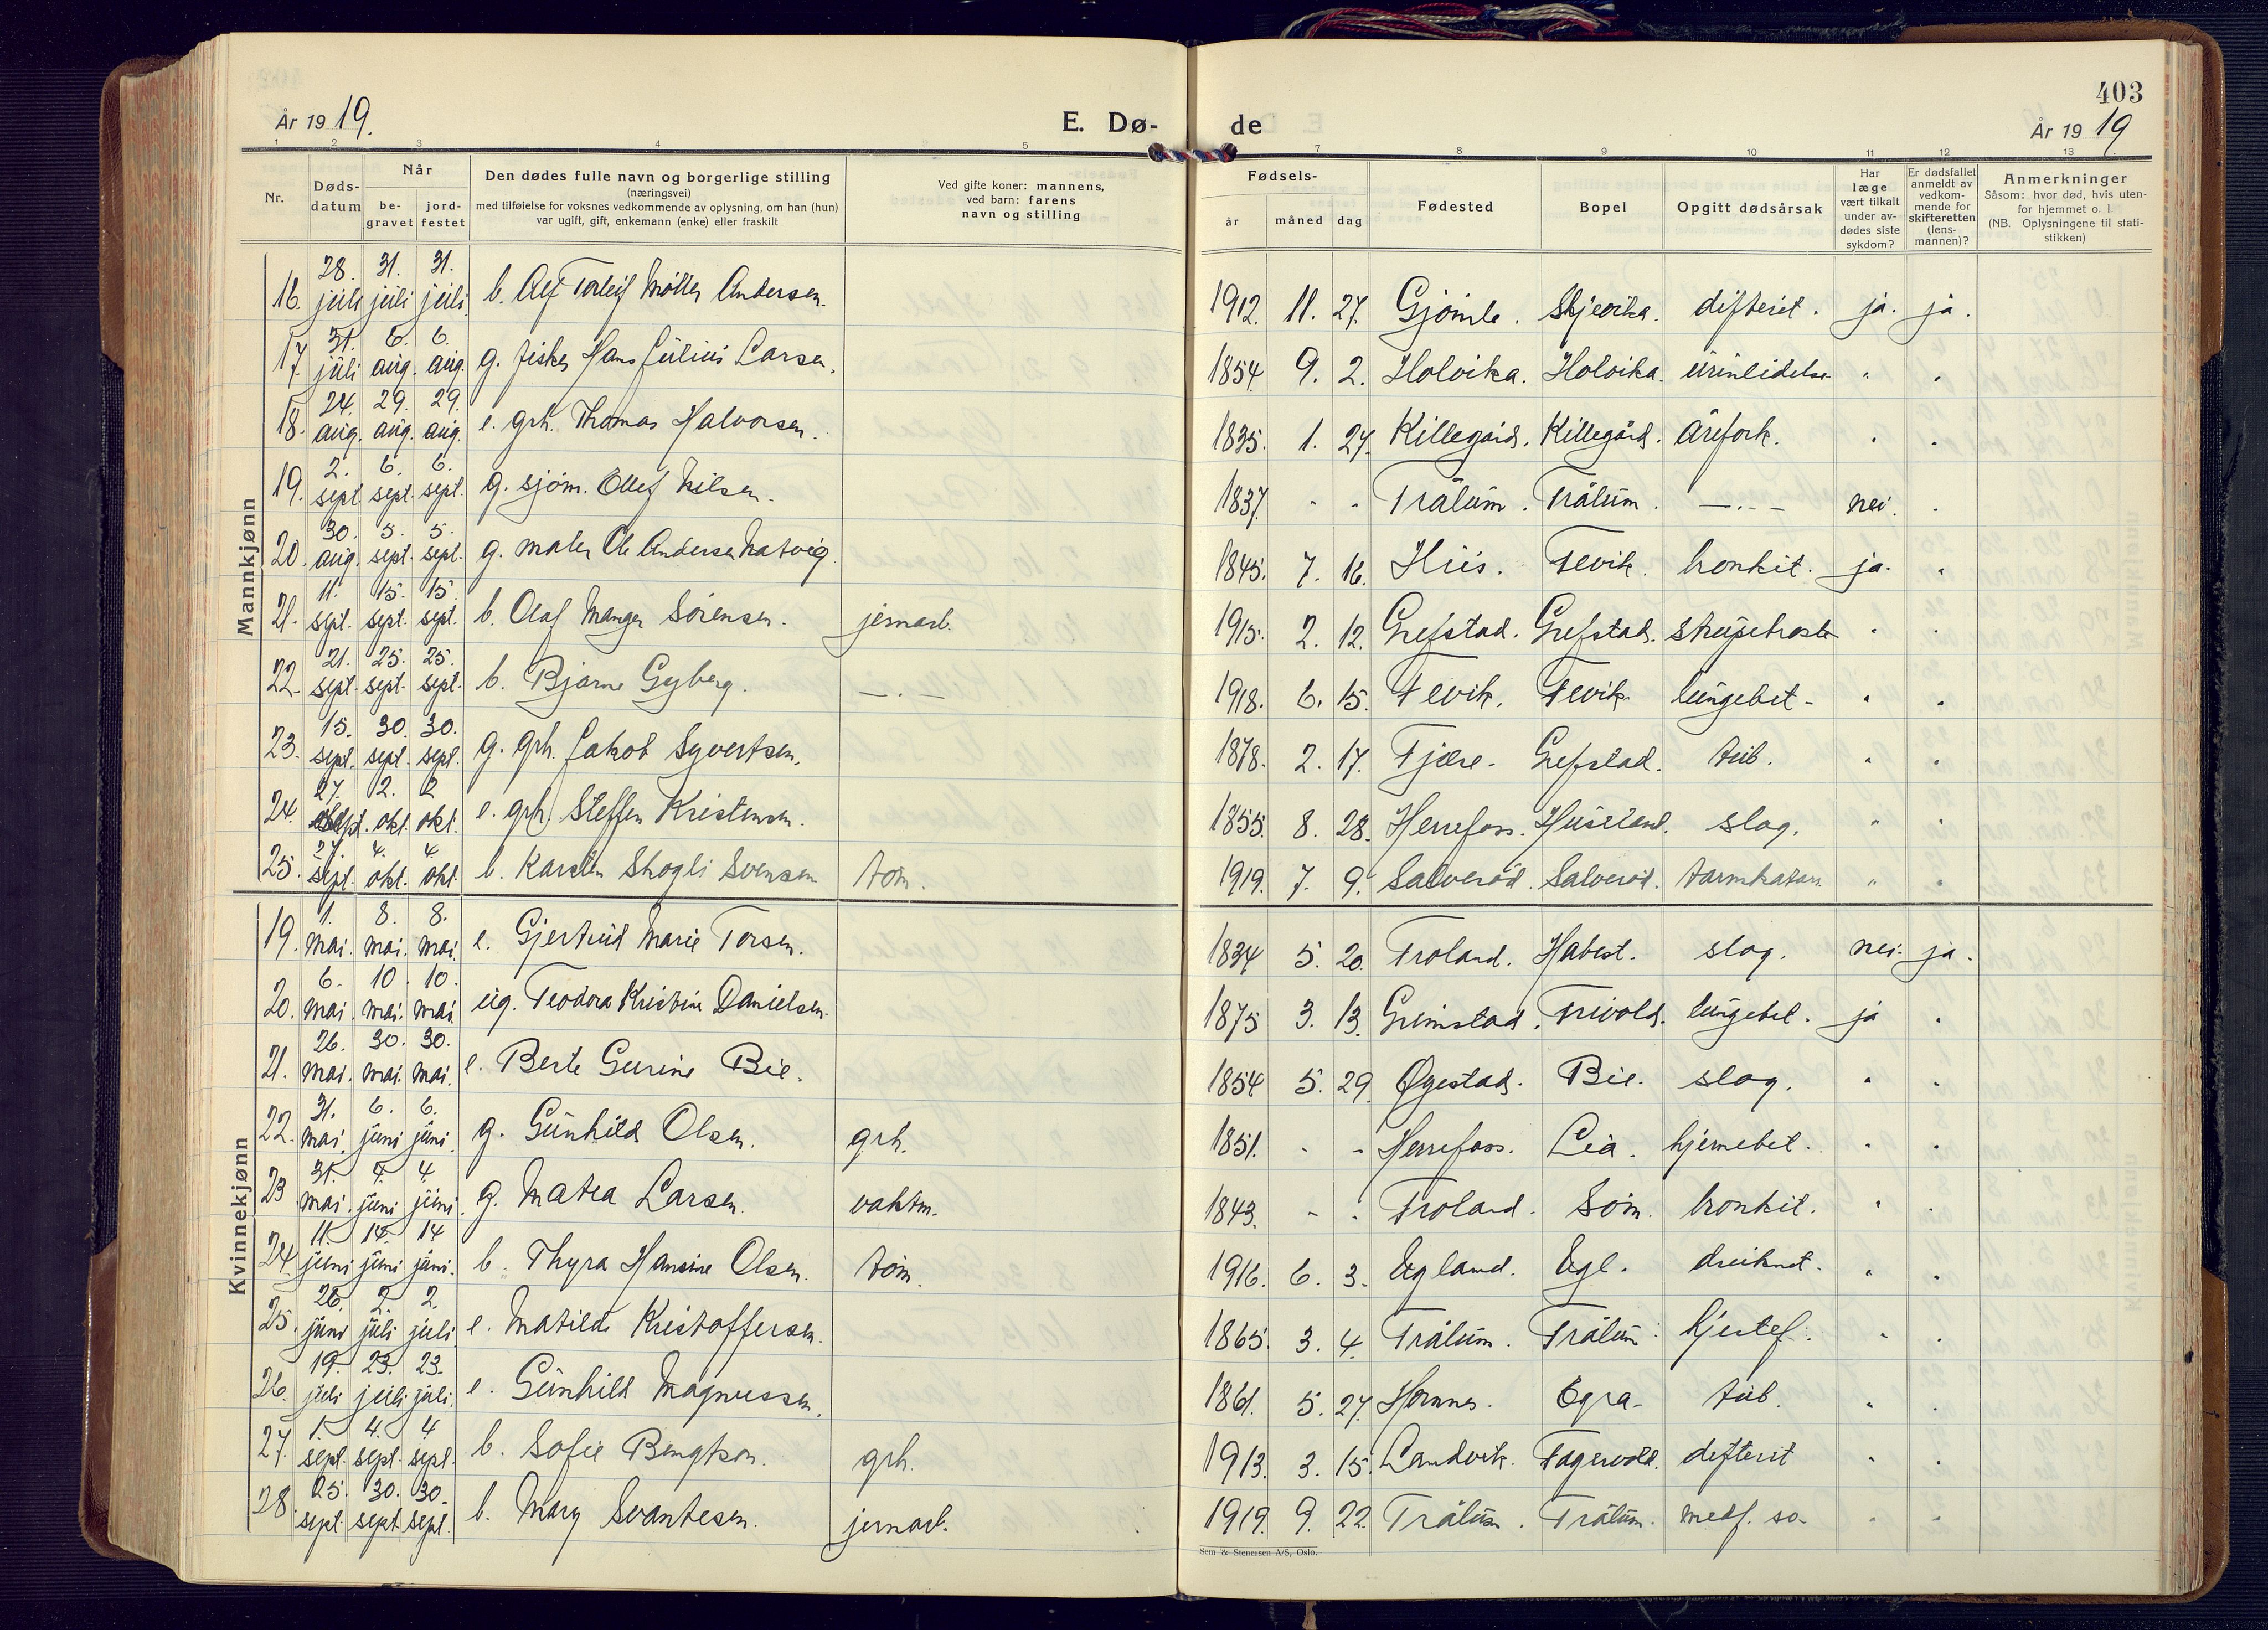 403
År 1919.
E. Dø- de
År 1919
1 2 3 4 5 7 8 9 10 11 12 13
Nr.
Døds-datum
Når
be-gravet
jord-festet
Den dødes fulle navn og borgerlige stilling
(næringsvei)
med tilføielse for voksnes vedkommende av oplysning, om han (hun)
var ugift, gift, enkemann (enke) eller fraskilt
Ved gifte koner: mannens,
ved barn: farens
navn og stilling
Fødsels-
år måned dag
Fødested
Bopel
Opgitt dødsårsak
Har læge vært tilkalt under av-dødes siste sykdom?
Er dødsfallet anmeldt av vedkom-mende for skifteretten (lens-mannen)?
Anmerkninger
Såsom: hvor død, hvis uten-
for hjemmet o. l.
(NB. Oplysningene til stati-
stikken)
Mannkjønn
16. 28. juli 31. juli 31. juli b. Alf Torleif Møller Andersen. 1912. 11. 27. Gjømle. Skjevika. difterit. ja. ja.
17. 31. juli 6. aug. 6. aug. g. fisker Hans Julius Larsen. 1854 9. 2. Holvika. Holvika. urinlidelse " "
18. 24. aug. 29. aug. 29. aug. e. grh. Thomas Halvorsen. 1835. 1. 27. Killegård. Killegård. Årefork. " "
19. 2. sept. 6. sept. 6. sept. g. sjøm. Ollef Nilsen. 1837. - - Trålum. Trålum. —.— nei. "
20. 30. aug. 5. sept. 5. sept. g. maler Ole Andersen Natvig. 1845. 7. 16. His. Fevik. bronkit. ja. "
21. 11. sept. 15. sept. 15. sept. b. Olaf Manger Sørensen. jernarb. 1915. 2. 12. Grefstad. Grefstad. strupehoste " "
22. 21. sept. 25. sept. 25. sept. b. Bjarne Gyberg. —.— 1918. 6. 15. Fevik. Fevik. lungebet. " "
23. 15. sept. 30. sept. 30. sept. g. grh. Jakob Syvertsen. 1878. 2. 17. Fjære. Grefstad. tub. " "
24. 27. sept. 2. okt. 2 okt. e. grh. Steffen Kristensen. 1855. 8. 28. Herrefoss. Huseland. slag. " "
25. 27. sept. 4. okt. 4. okt. b. Karsten Skogli Svensen tøm. 1919. 7. 9. Salverød. Salverød. tarmkatarr. " "
Kvinnekjønn
19. 1. mai. 8. mai. 8. mai. e. Gjertrud Marie Torsen. 1834 5. 20. Froland. Habest. slag. nei. ja.
20. 6. mai. 10. mai. 10. mai ug. Teodora Kristine Danielsen. 1875 3. 13. Grimstad. Frivold. lungebet. ja "
21. 26. mai. 30. mai. 30. mai. e. Berte Gurine Bie. 1854 5. 29. Øgestad. Bie. slag. " "
22. 31. mai. 6. juni 6. juni g. Gunhild Olsen. grh. 1851. - - Herrefoss. Lia. hjernebet. " "
23 31. mai. 4. juni 4. juni. g. Matea Larsen. vaktm. 1843. - - Froland. Søm. bronkit. " "
24. 11. juni 14. juni 14 juni. b. Thyra Hansine Olsen. tøm. 1916. 6. 3. Egland. Egl. druknet. " "
25. 26. juni 2. juli 2. juli e. Matilde Kristoffersen. 1865. 3. 4. Trålum. Trålum. hjertef. " "
26. 19. juli 23. juli 23. juli. e. Gunhild Magnussen. 1861. 5. 27. Hornnes. Egra. tub. " "
27. 1. sept. 4. sept. 4 sept. b. Sofie Bengtson. grh. 1913. 3. 15. Landvik. Fagervold. difterit " "
28. 25. sept. 30. sept. 30. sept. b. Mary Svantesen. jernarb. 1919. 9. 22. Trålum. Trålum. medf. so. " "
Sem & Stenersen A/S, Oslo.